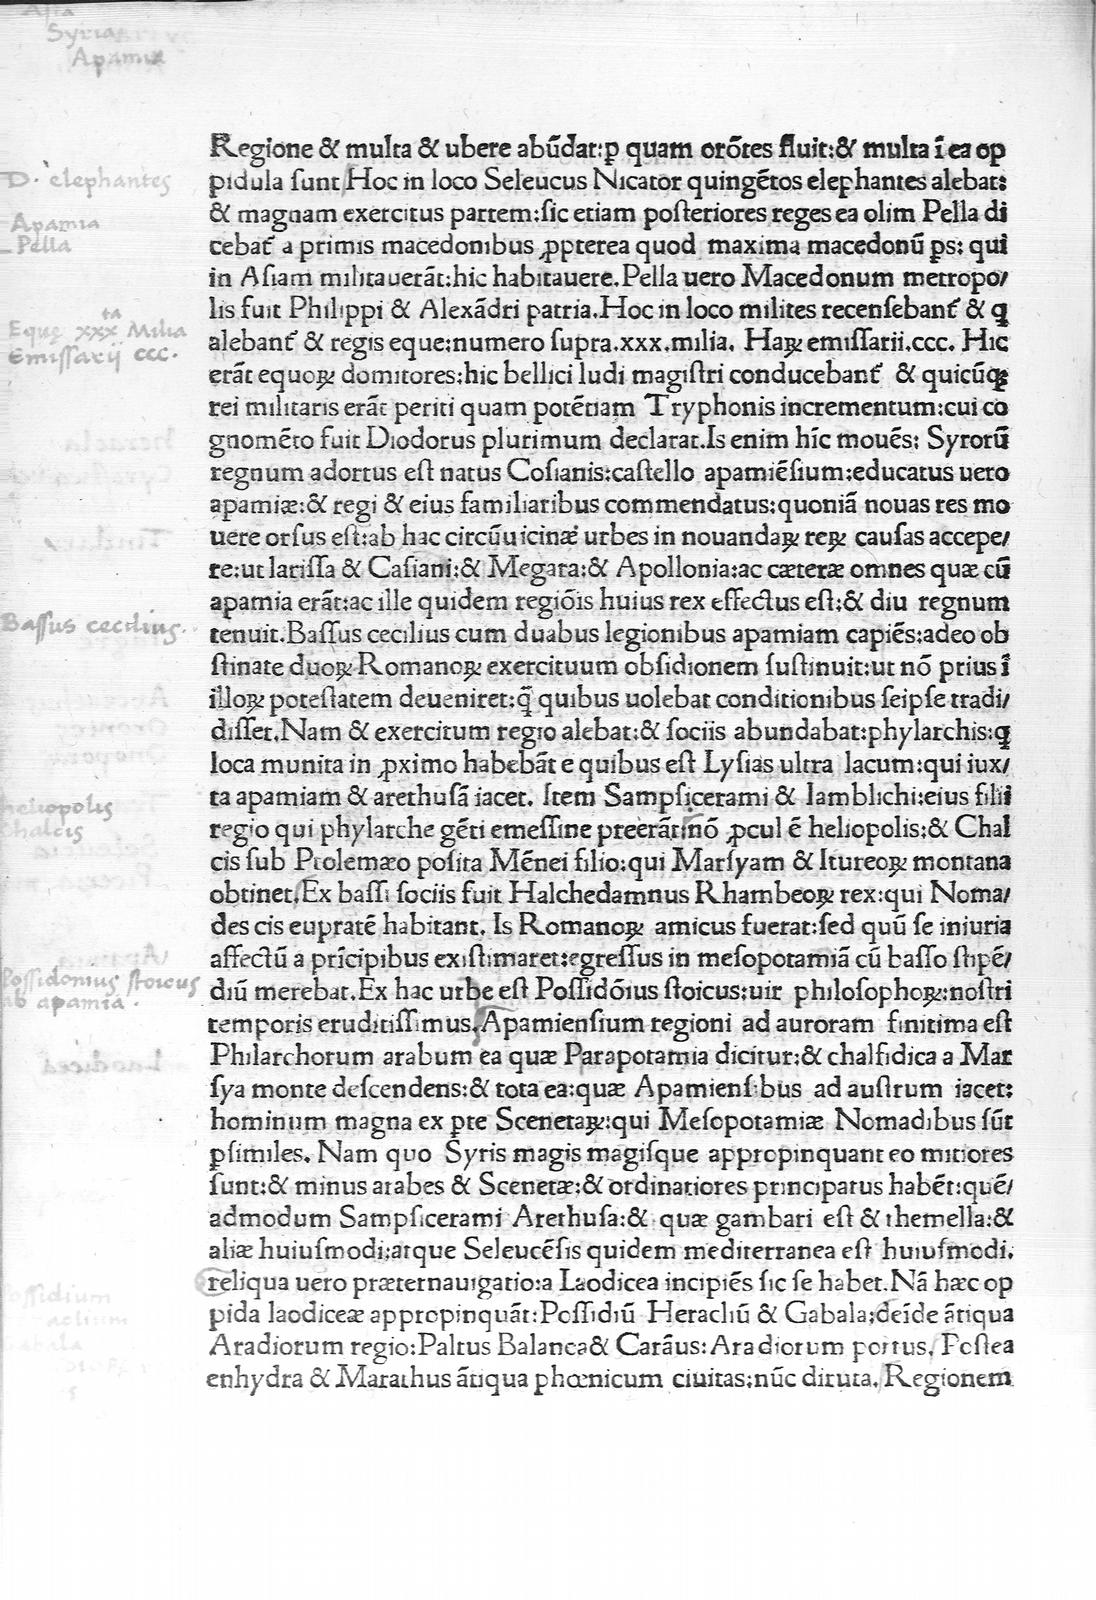 Asia
Syria
Apamia
Regione & multa & ubere abūdat:ꝑ quam orōtes fluit:& multa ī ea op
D. elephantes
pidula ſunt/Hoc in loco Seleucus Nicator quingētos elephantes alebat:
& magnam exercitus partem:ſic etiam poſteriores reges ea olim Pella di
Apamia
Pella
cebat᷑ a primis macedonibus ꝓpterea quod maxima macedonū ꝑs: qui
in Aſiam militauerāt:hic habitauere.Pella uero Macedonum metropo/
lis fuit Philippi & Alexādri patria.Hoc in loco milites recenſebant᷑ & ꝗ
Eque xxx ta Milia
Emiſſarij ccc.
alebant᷑ & regis eque:numero ſupra.xxx.milia. Haꝝ emiſſarii.ccc. Hic
erāt equoꝝ domitores:hic bellici ludi magiſtri conducebant᷑ & quicūꝗ
rei militaris erāt periti quam potētiam Tryphonis incrementum:cui co
gnomēto fuit Diodotus plurimum declarat.Is enim hīc mouēs: Syrorū
regnum adortus eſt natus Coſianis:caſtello apamiēſium:educatus uero
apamiæ:& regi & eius familiaribus commendatus:quoniā nouas res mo
uere orſus eſt:ab hac circūuicinæ urbes in nouandaꝝ reꝝ cauſas accepe/
re:ut lariſſa & Caſiani:& Megara:& Apollonia:ac cæteræ omnes quæ cū
apamia erāt:ac ille quidem regiōis huius rex effectus eſt:& diu regnum
Baſſus cecilius.
tenuit.Baſſus cecilius cum duabus legionibus apamiam capiēs:adeo ob
ſtinate duoꝝ Romanoꝝ exercituum obſidionem ſuſtinuit:ut nō prius ī
illoꝝ poteſtatem deueniret:q̄ quibus uolebat conditionibus ſeipſe tradi/
diſſet.Nam & exercitum regio alebat:& ſociis abundabat:phylarchis:ꝗ
loca munita in ꝓximo habebāt e quibus eſt Lyſias ultra lacum:qui iux/
heliopolis
Chalcis
ta apamiam & arethuſā iacet. Item Sampſicerami & Iamblichi:eius filii
regio qui phylarche gēti emeſſine preerāt:nō ꝓcul ē heliopolis:& Chal
cis ſub Ptolemæo poſita Mēnei filio:qui Marſyam & Itureoꝝ montana
obtinet.Ex baſſi ſociis fuit Halchedamnus Rhambeoꝝ rex:qui Noma/
des cis eupratē habitant. Is Romanoꝝ amicus fuerat:ſed quū ſe iniuria
affectū a prīcipibus exiſtimaret:egreſſus in meſopotamiā cū baſſo ſtipē/
Poſſidonius ſtoicus
ab apamia.
diū merebat.Ex hac urbe eſt Poſſidōius ſtoicus:uir philoſophoꝝ:noſtri
temporis eruditiſſimus.Apamienſium regioni ad auroram finitima eſt
Philarchorum arabum ea quæ Parapotamia dicitur:& chalſidica a Mar
ſya monte deſcendens:& tota ea:quæ Apamienſibus ad auſtrum iacet:
hominum magna ex ꝑte Scenetaꝝ:qui Meſopotamiæ Nomadibus ſūt
ꝑſimiles. Nam quo Syris magis magiſque appropinquant eo mitiores
ſunt:& minus arabes & Scenetæ:& ordinatiores principatus habēt:quē/
admodum Sampſicerami Arethuſa:& quæ gambari eſt & themella:&
aliæ huiuſmodi:atque Seleucēſis quidem mediterranea eſt huiuſmodi.
reliqua uero præternauigatio:a Laodicea incipiēs ſic ſe habet.Nā hæc op
Poſſidium
aclium
Gabala
pida laodiceæ appropinquāt:Poſſidiū Heracliū & Gabala:deīde ātiqua
Aradiorum regio:Paltus Balanea & Carāus:Aradiorum portus. Poſtea
enhydra & Marathus ātiqua phœnicum ciuitas:nūc diruta. Regionem